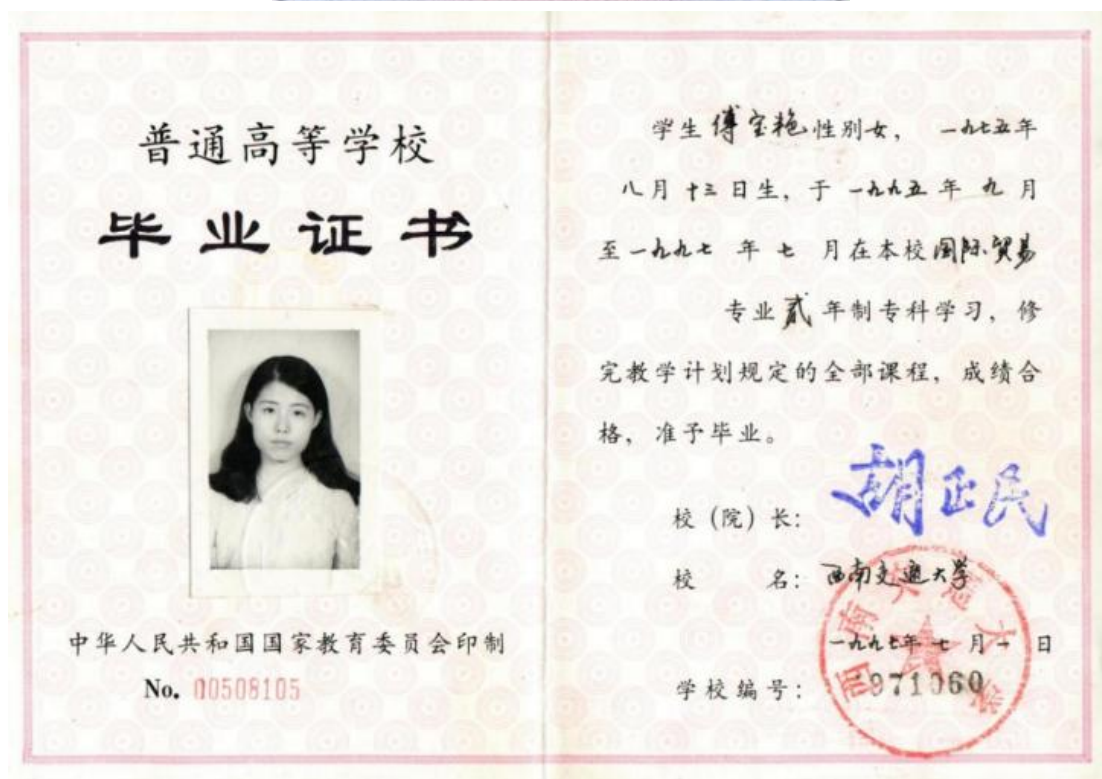 普通高等学校
毕业证书
中华人民共和国国家教育委员会印制
No. 00508105
学生傅宝艳性别女，一九七五年
八月十三日生，于一九九五年九月
至一九九七年七月在本校国际贸易
专业贰年制专科学习，修
完教学计划规定的全部课程，成绩合
格，准予毕业。
校（院）长：胡正民
校名：西南交通大学
一九九七年七月一日
学校编号：971060
西南交通大学